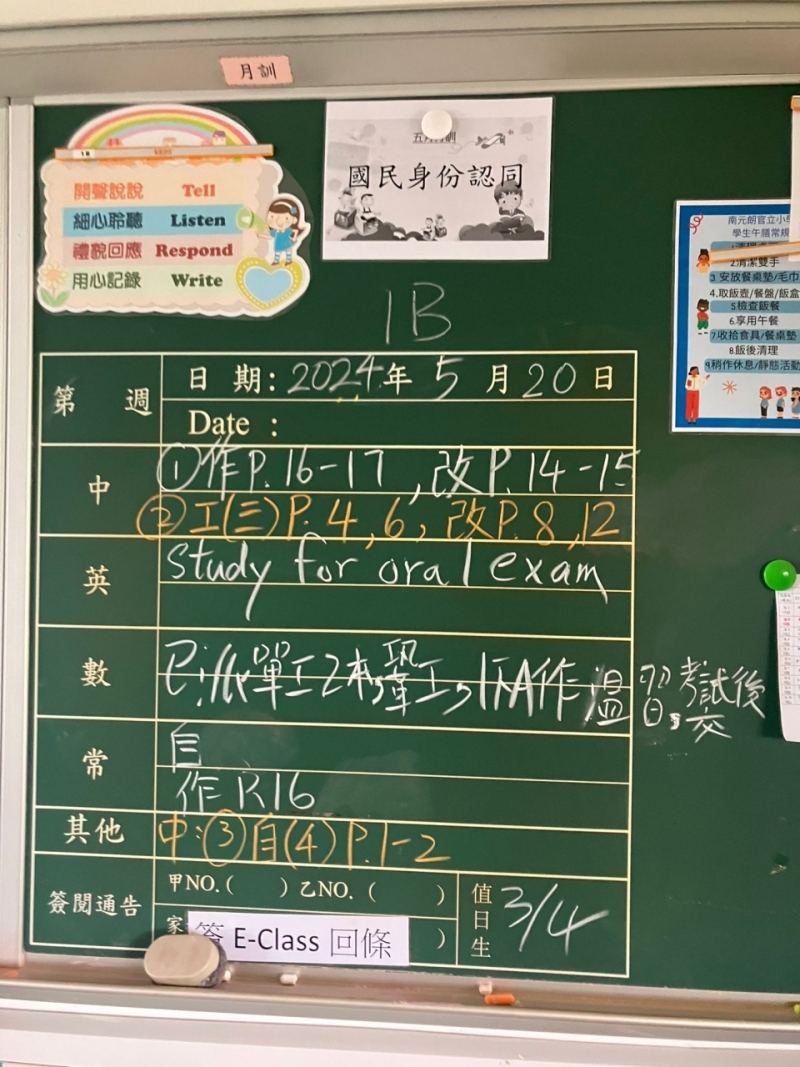 月訓
開聲說說 Tell
細心聆聽 Listen
禮貌回應 Respond
用心記錄 Write
國民身份認同
南元朗官立小
學生午膳常規
2.清潔雙手
3 安放餐桌墊/毛巾
4.取飯壺/餐盤/飯盒
5.檢查飯餐
6.享用午餐
7.收拾食具/餐桌墊
8.飯後清理
9.稍作休息/靜態活動
1B
第 週
日 期: 2024年 5 月 20 日
Date :
中
①作P.16-17,改P.14-15
②工(三)P.4,6,改P.8,12
英
Study for oral exam
數
溫習,考試後
交
常
自
作 P.16
其他
中:③自(4)P.1-2
簽閱通告
甲NO.( ) 乙NO. ( )
家 簽 E-Class 回條 )
值日生
3/4